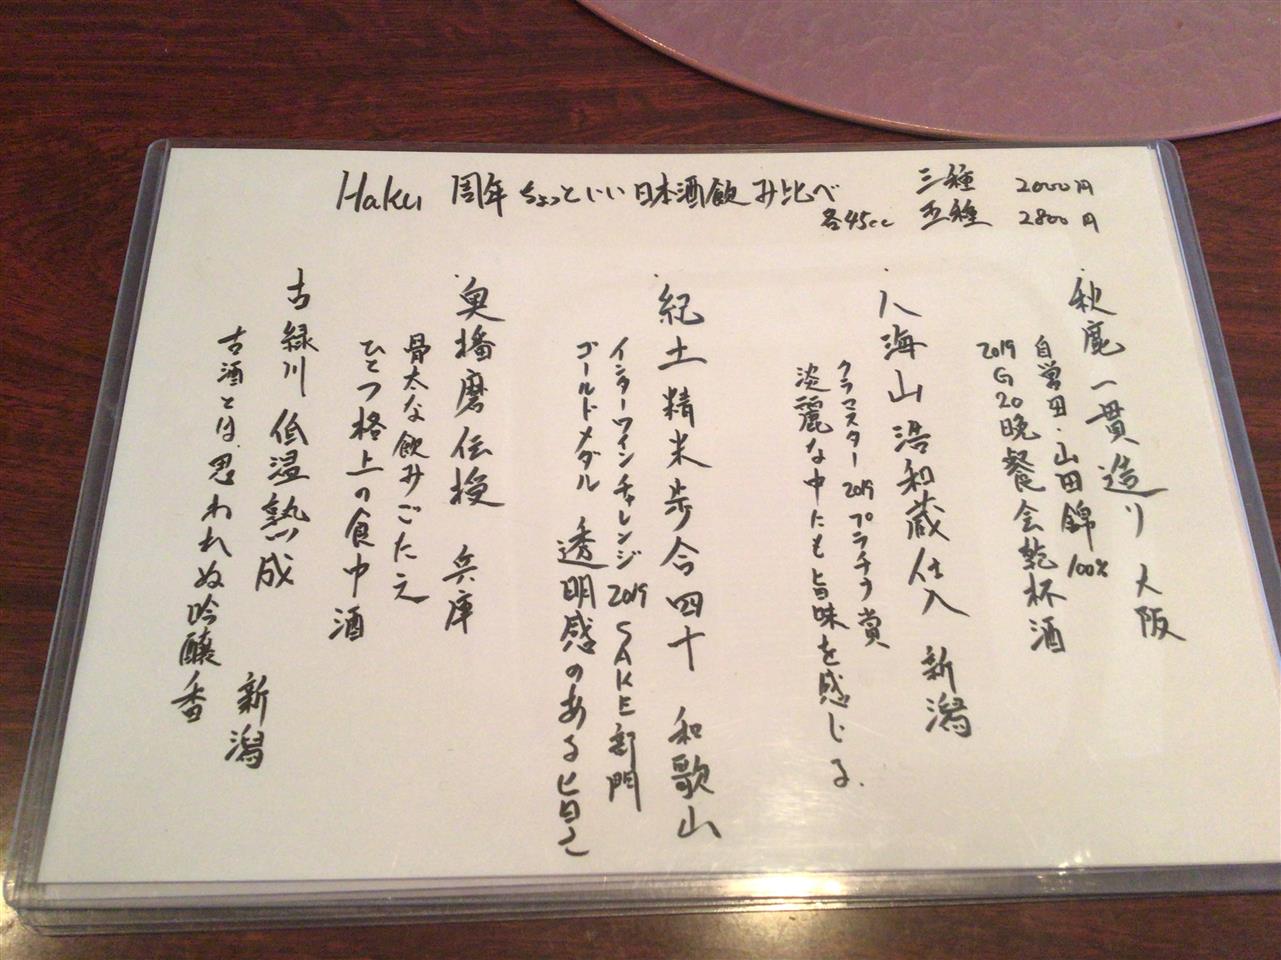 Haku 周年 ちょっといい日本酒飲み比べ
各45cc
三種 2000円
五種 2800円
秋鹿 一貫造り 大阪
自営田・山田錦100%
2019 G20晩餐会乾杯酒
八海山 浩和蔵仕込 新潟
クラマスター2019プラチナ賞
淡麗な中にも旨味を感じる。
紀土 精米歩合四十 和歌山
インターワインチャレンジ2019 SAKE部門
ゴールドメダル 透明感のある旨さ
奥播磨 伝授 兵庫
骨太な飲みごたえ
ひとつ格上の食中酒
古 緑川 低温熟成 新潟
古酒とは思われぬ吟醸香